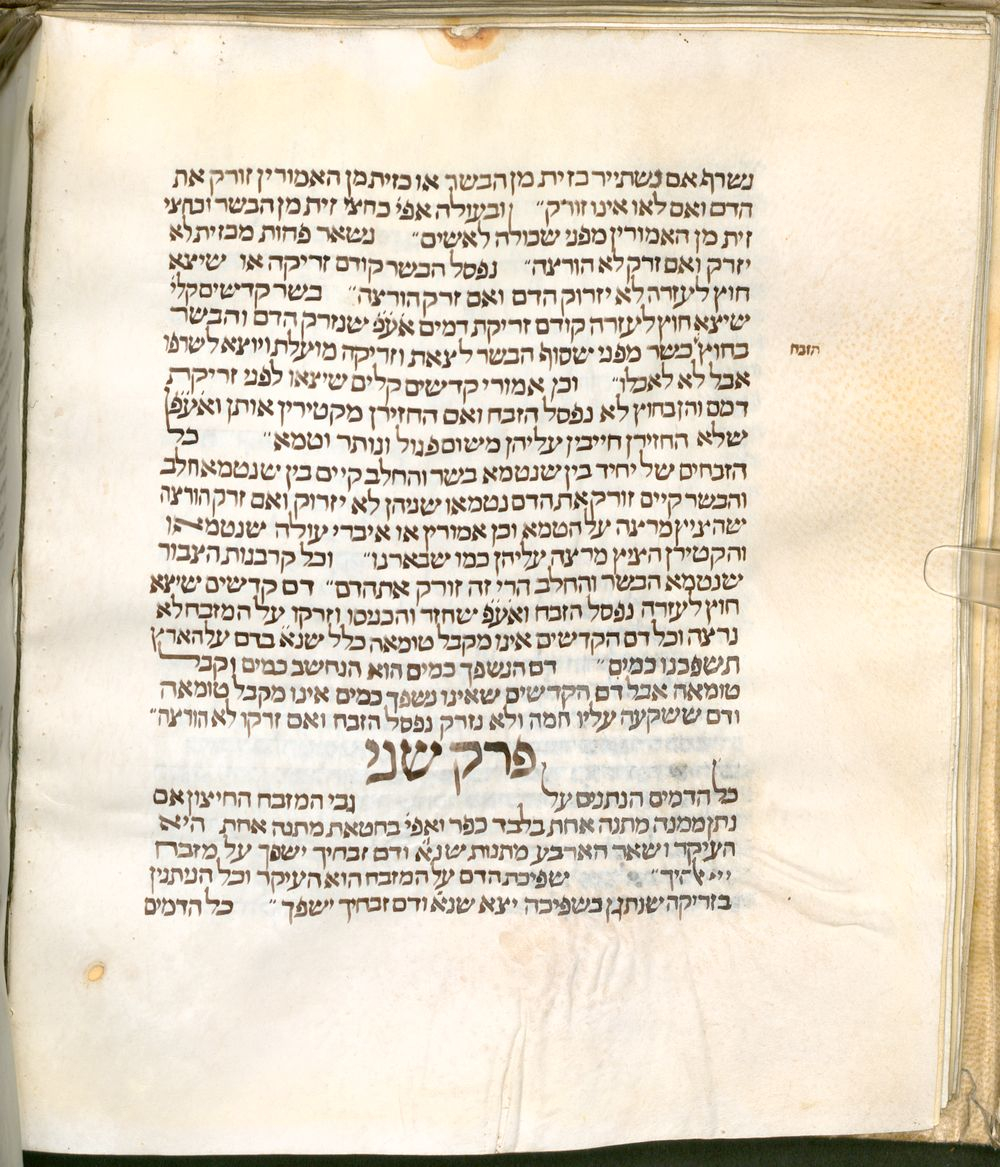 נשרף אם נשתייר כזית מן הבשר או כזית מן האמורין זורק את
הדם ואם לאו אינו זורק״ ובעולה אפי׳ כחצי זית מן הבשר וכחצי
זית מן האמורין מפני שכולה לאשים״ נשאר פחות מכזית לא
יזרק ואם זרק לא הורצה״ נפסל הבשר קודם זריקה או שיצא
חוץ לעזרה לא יזרוק הדם ואם זרק הורצה״ בשר קדשים קלי׳
שיצא חוץ לעזרה קודם זריקת דמים אע״פ שנזרק הדם והבשר
בחוץ כשר מפני שסוף הבשר לצאת וזריקה מועלת ויוצא לשרפו
הזבח
אבל לא לאכלו״ וכן אמורי קדשים קלים שיצאו לפני זריקת
דמם והן בחוץ לא נפסל הזבח ואם החזירן מקטירין אותן ואע״פ
שלא החזירן חייבין עליהן משום פגול ונותר וטמא״ כל
הזבחים של יחיד בין שנטמא בשר והחלב קיים בין שנטמא חלב
והבשר קיים זורק את הדם נטמאו שניהן לא יזרוק ואם זרק הורצה
שהציץ מרצה על הטמא וכן אמורין או איברי עולה שנטמאו
והקטירן הציץ מרצה עליהן כמו שבארנו״ וכל קרבנות הצבור
שנטמא הבשר והחלב הרי זה זורק את הדם״ דם קדשים שיצא
חוץ לעזרה נפסל הזבח ואע״פ שחזר והכניסו וזרקו על המזבח לא
נרצה וכל דם הקדשים אינו מקבל טומאה כלל שנא׳ בדם על הארץ
תשפכנו כמים״ דם הנשפך כמים הוא הנחשב כמים וקבל
טומאה אבל דם הקדשים שאינו נשפך כמים אינו מקבל טומאה
ודם ששקעה עליו חמה ולא נזרק נפסל הזבח ואם זרקו לא הורצה״
פרק שני
כל הדמים הנתנים על גבי המזבח החיצון אם
נתן ממנה מתנה אחת בלבד כפר ואפי׳ בחטאת מתנה אחת היא
העיקר ושאר הארבע מתנות שנא׳ ודם זבחיך ישפך על מזבח
ייי אלהיך״ שפיכת הדם על המזבח הוא העיקר וכל הניתנין
בזריקה שנתנן בשפיכה יצא שנא׳ ודם זבחיך ישפך״ כל הדמים